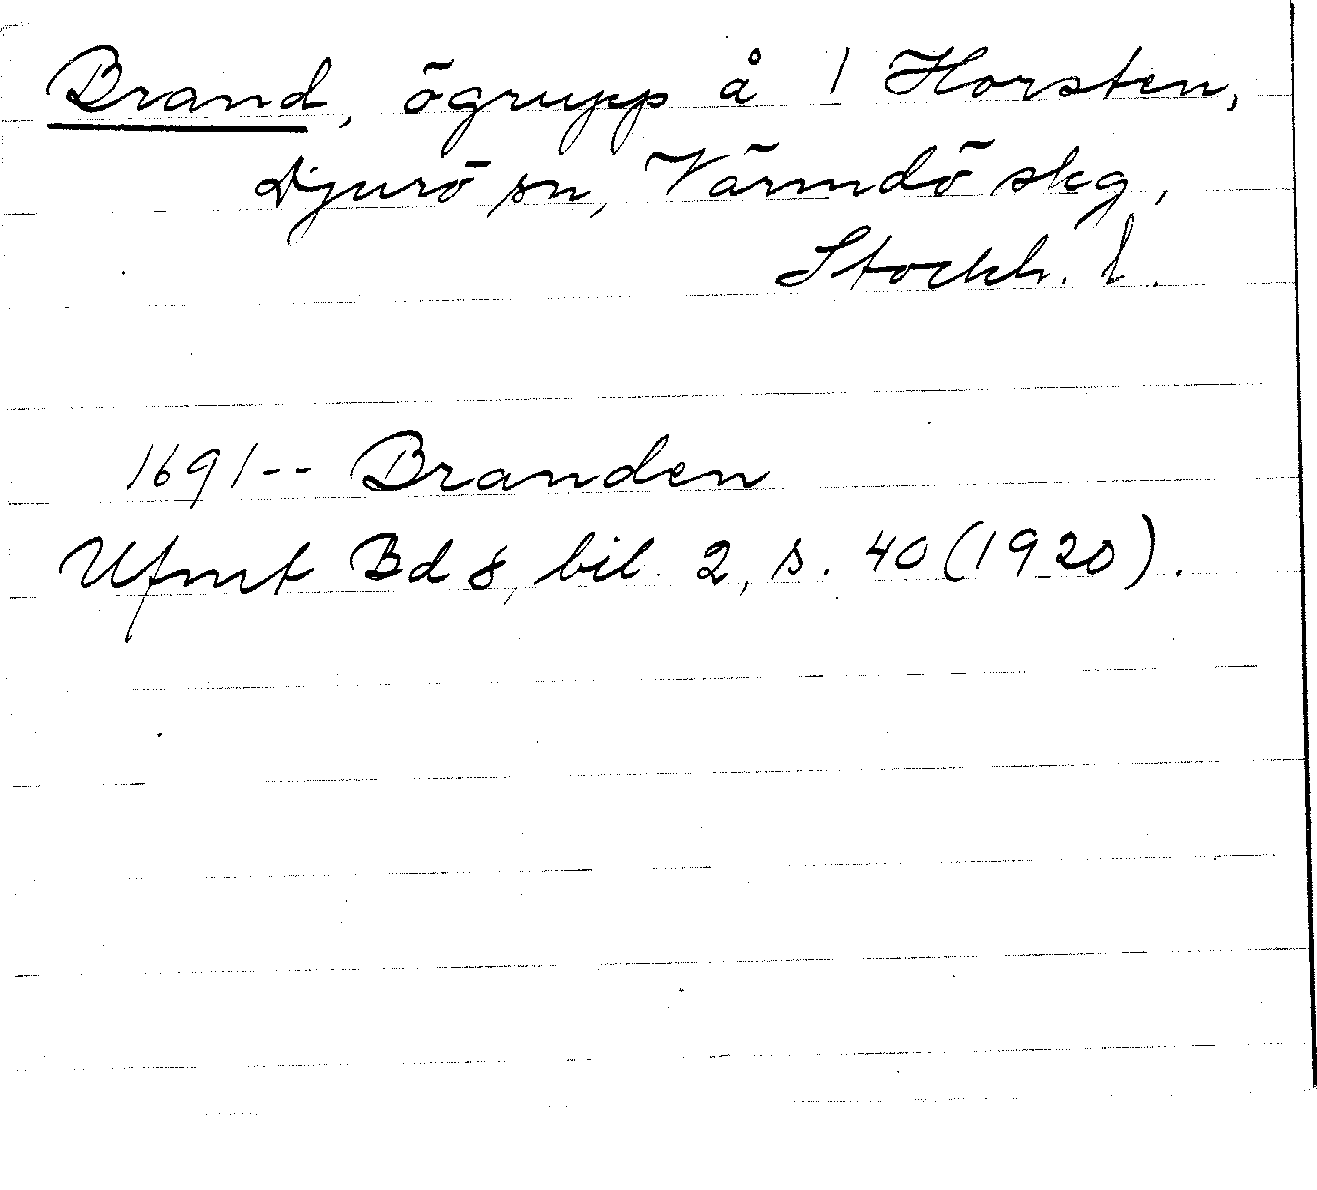 Brand, ögrupp å 1 Horsten,
Djurö sn, Värmdö skg,
Stockh. l.
1691-- Branden
Ufmt Bd 8, bil. 2, s. 40 (1920).